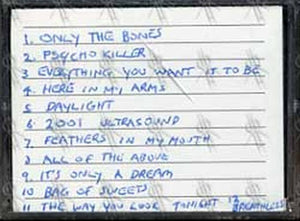 1. ONLY THE BONES
2. PSYCHO KILLER
3 EVERYTHING YOU WANT IT TO BE
4. HERE IN MY ARMS
5 DAYLIGHT
6 2001 ULTRASOUND
7. FEATHERS IN MY MOUTH
8 ALL OF THE ABOVE
9. IT'S ONLY A DREAM
10 BAG OF SWEETS
11 THE WAY YOU LOOK TONIGHT 12 BREATHLESS